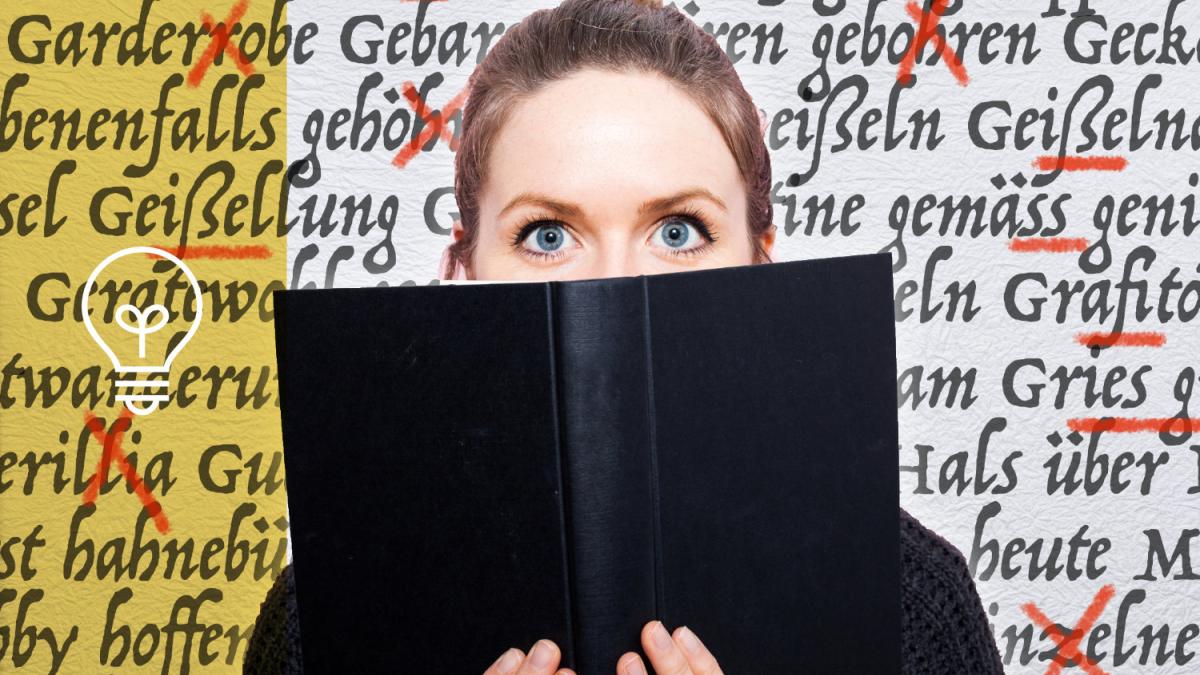 Garderrobe Gebar ren gebohren Geck
benenfalls gehöh eißeln Geißeln
sel Geißellung G ine gemäss geni
Geratewo eln Grafito
twanderu am Gries g
erillia Gu Hals über
st hahnebü heute M
bby hoffen inzelne